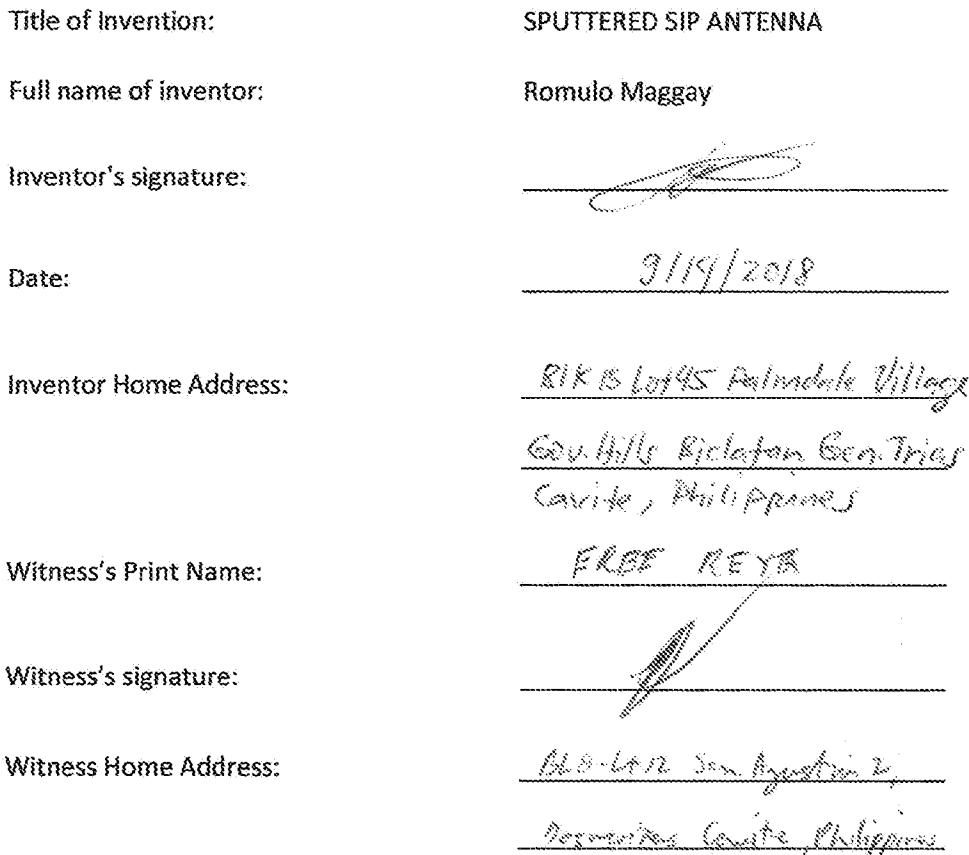 Title of Invention: SPUTTERED SIP ANTENNA
Full name of inventor: Romulo Maggay
Inventor's signature:
Date: 9/19/2018
Inventor Home Address: Blk B Lot 45 Palmdale Village
Gov. Hills Biclatan Gen. Trias
Cavite, Philippines
Witness's Print Name: FREE
Witness's signature:
Witness Home Address: San Agustin 2,
Cavite, Philippines